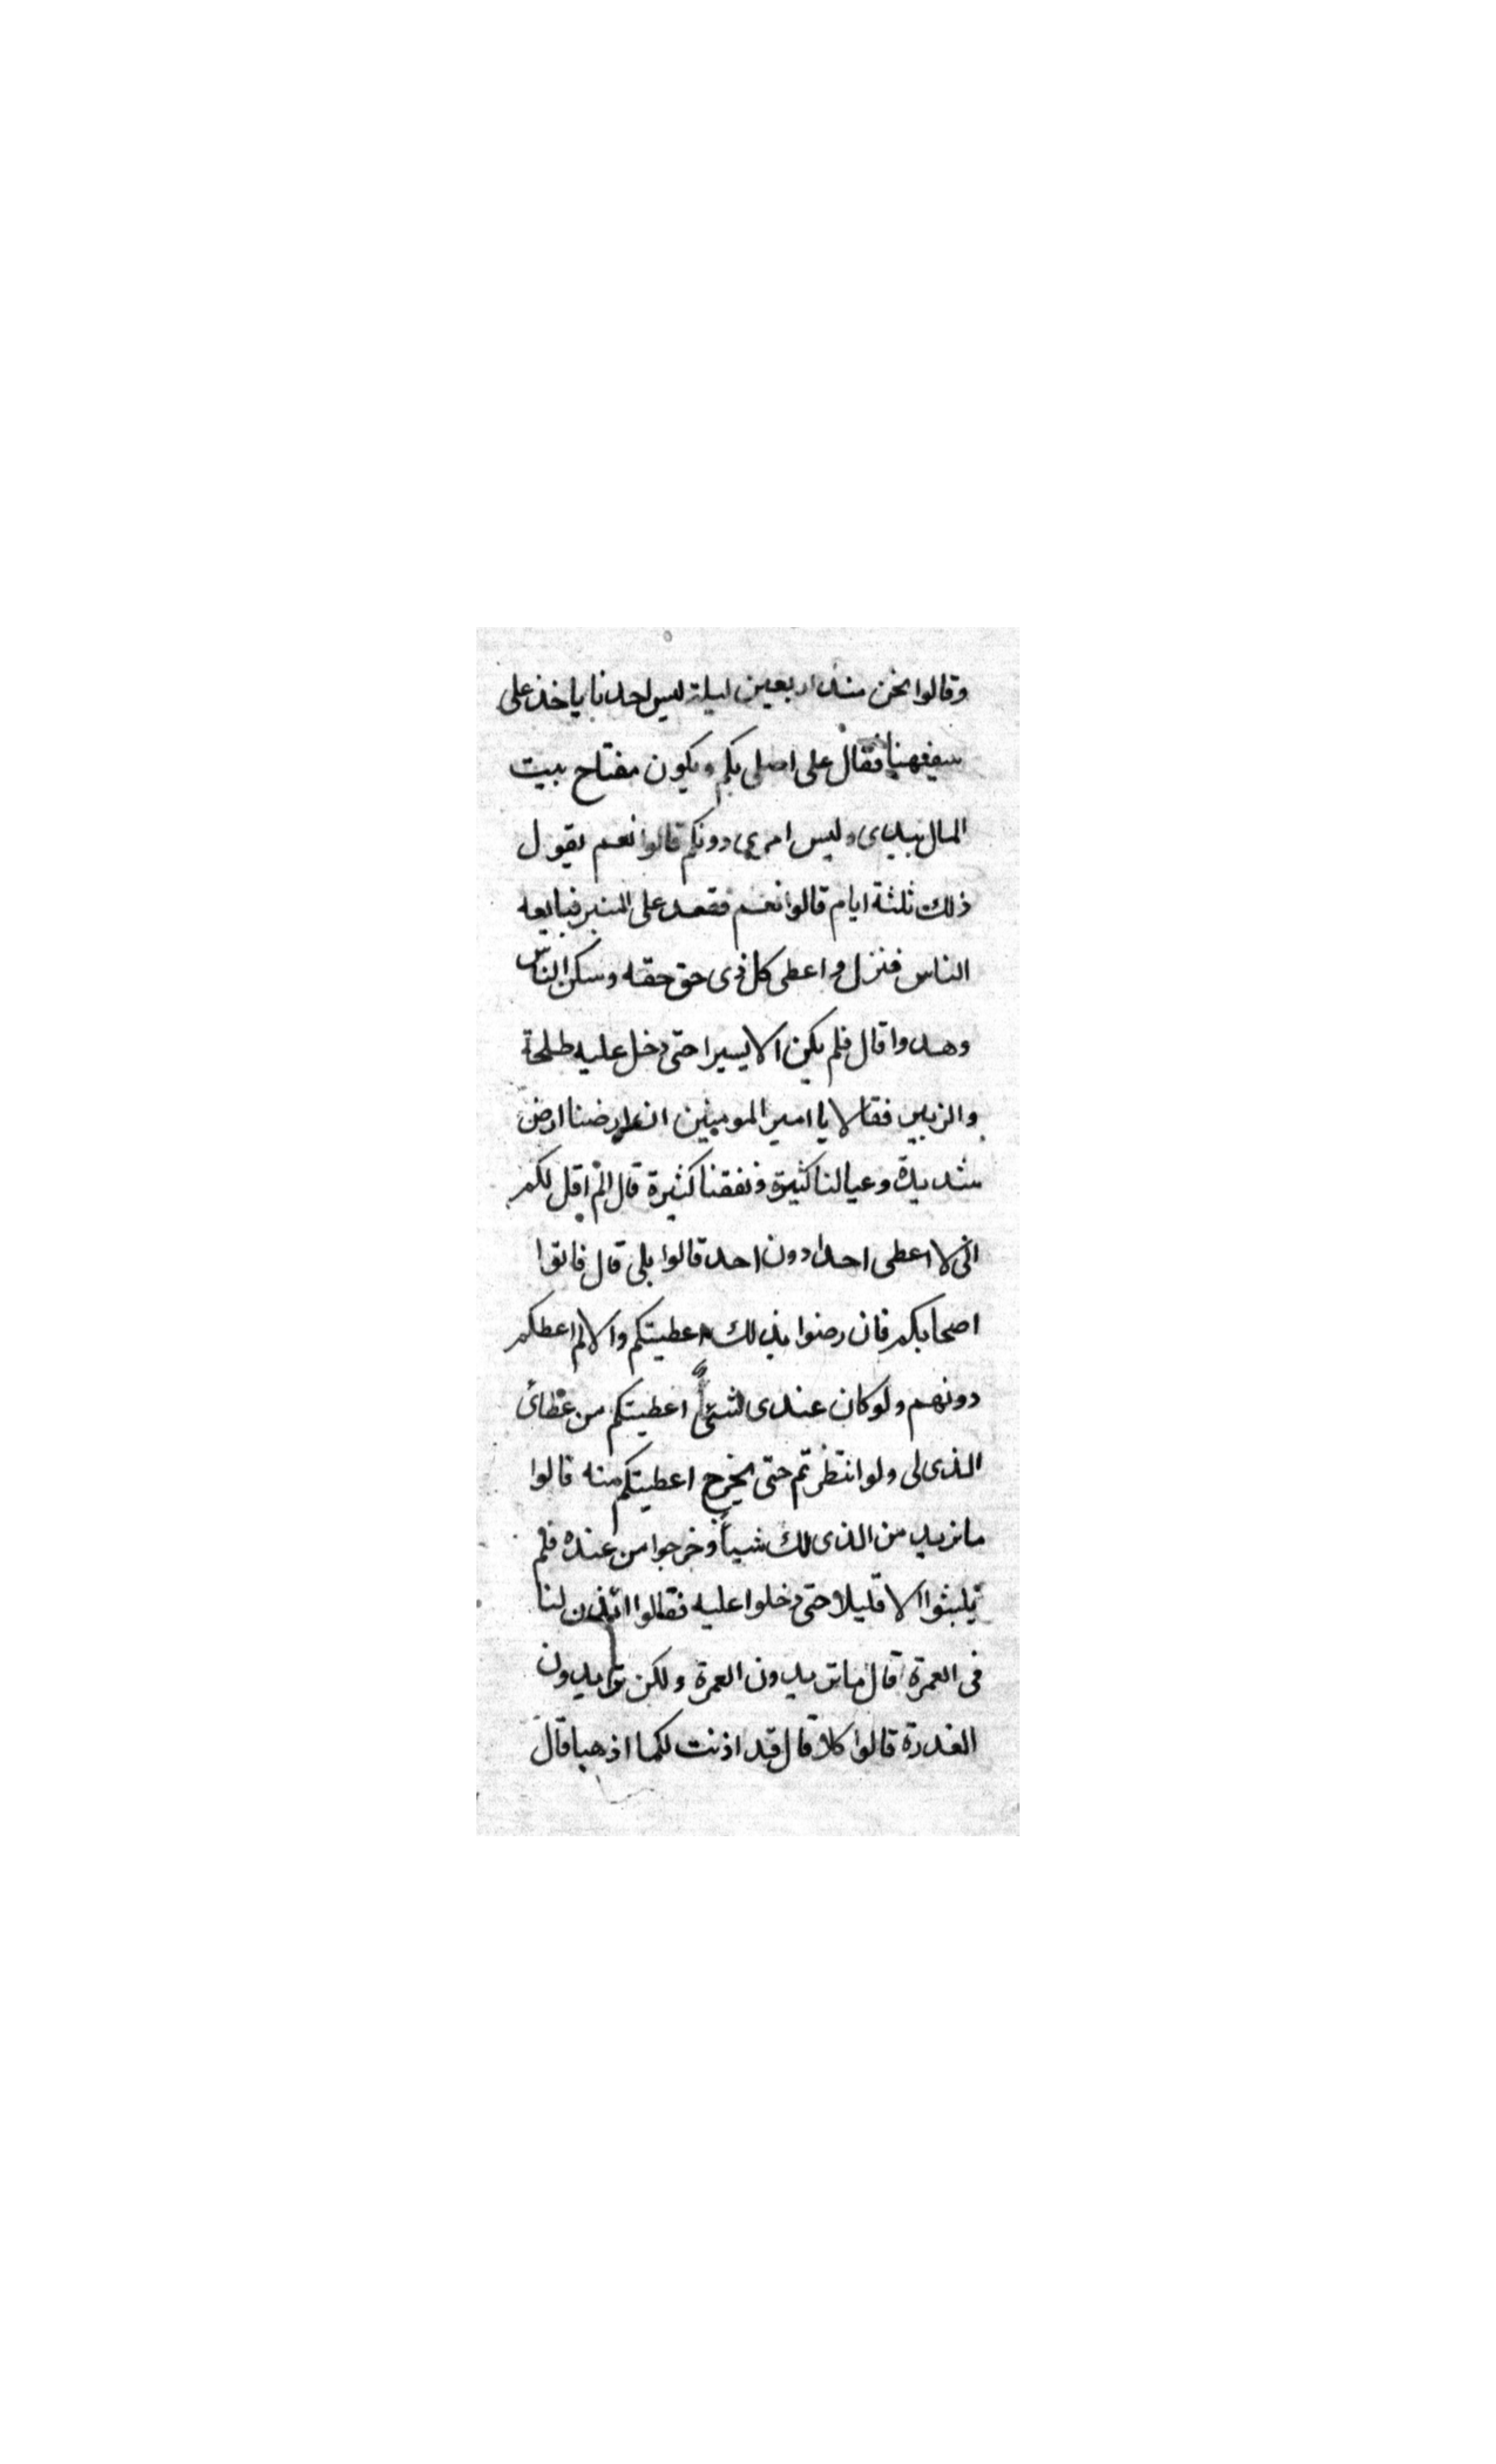 وقالوا نحن منذ اربعين ليلة ليس احدنا ياخذ على
سفيهنا فقال على اصلى بكم ويكون مفتاح بيت
المال بيدى وليس امرى دونكم قالوا نعم يقول
ذلك ثلثة ايام قالوا نعم فقعد على المنبر فبايعه
الناس فنزل واعطى كل ذى حق حقه وسكن الناس
وهدوا قال فلم يكن الا يسيرا حتى دخل عليه طلحة
والزبير فقالا يا امير المومنين ان ارضنا ارض
شديدة وعيالنا كثيرة ونفقتنا كثيرة قال الم اقل لكم
انى لا اعطى احدا دون احد قالوا بلى قال فاتوا
اصحابكم فان رضوا بذلك اعطيتكم والا لم اعطكم
دونهم ولو كان عندى شئ اعطيتكم من عطائى
الذى لى ولو انتظرتم حتى يخرج اعطيتكم منه قالوا
ما نريد من الذى لك شيأ وخرجوا من عنده فلم
يلبثوا الا قليلا حتى دخلوا عليه فقالوا ائذن لنا
فى العمرة قال ما تريدون العمرة ولكن تريدون
الغدرة قالوا كلا قال قد اذنت لكما اذهبا قال